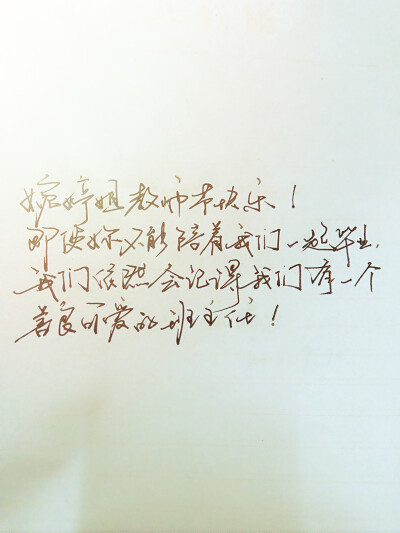 婉婷姐教师节快乐！
即使你不能陪着我们一起毕业，
我们依然会记得我们有一个
善良可爱的班主任！